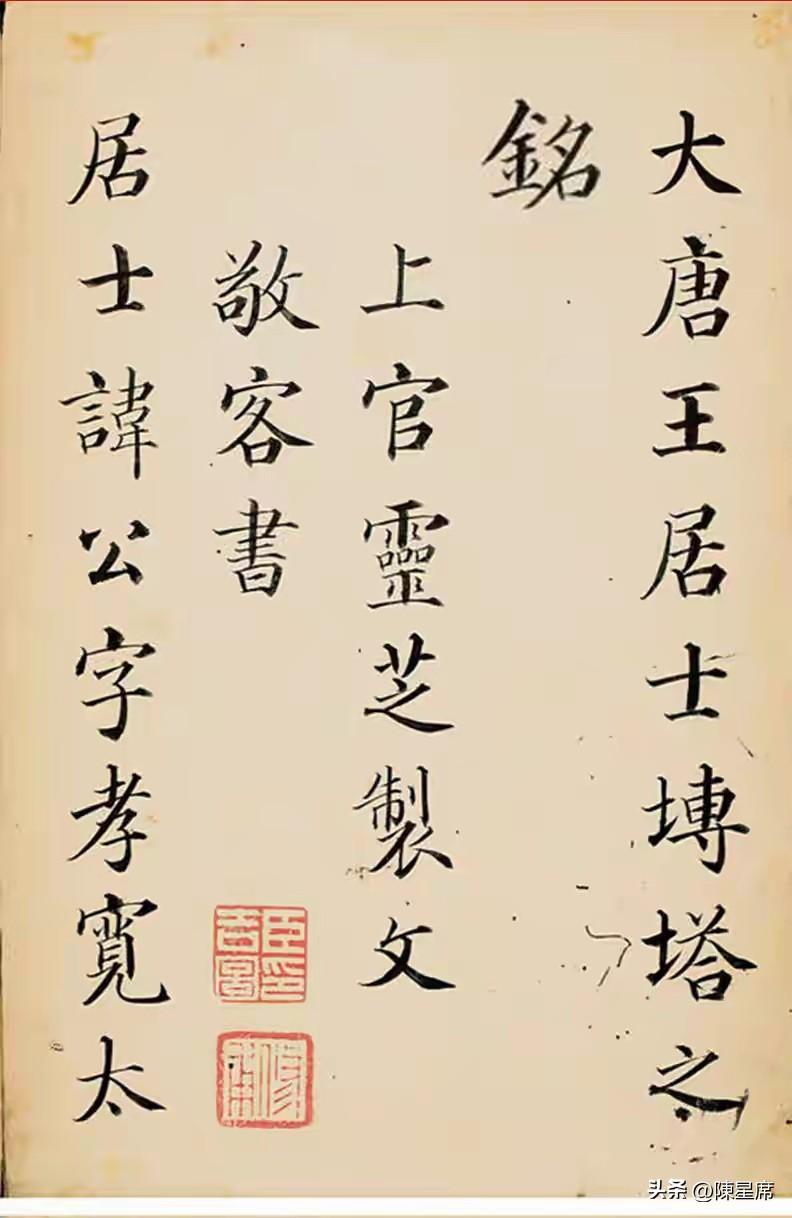 大唐王居士塼塔之
銘
上官靈芝製文
敬客書
居士諱公字孝寬太
头条 @陳星席